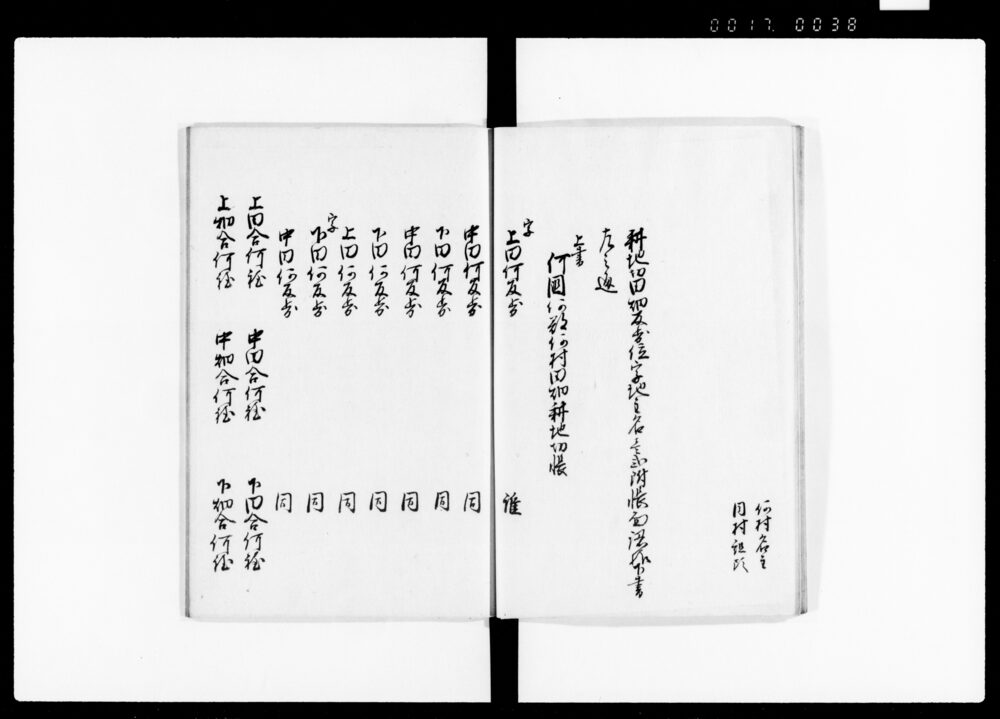 0017. 0038
何村名主
同村組頭
耕地切田畑反歩位字地主名
下書
左之通
上書
何國何郡何村田畑耕地切帳
字
上田何反歩 誰
中田何反歩 同
下田何反歩 同
中田何反歩 同
下田何反歩 同
上田何反歩 同
字
下田何反歩 同
中田何反歩 同
上田合何程 中田合何程 下田合何程
上畑合何程 中畑合何程 下畑合何程